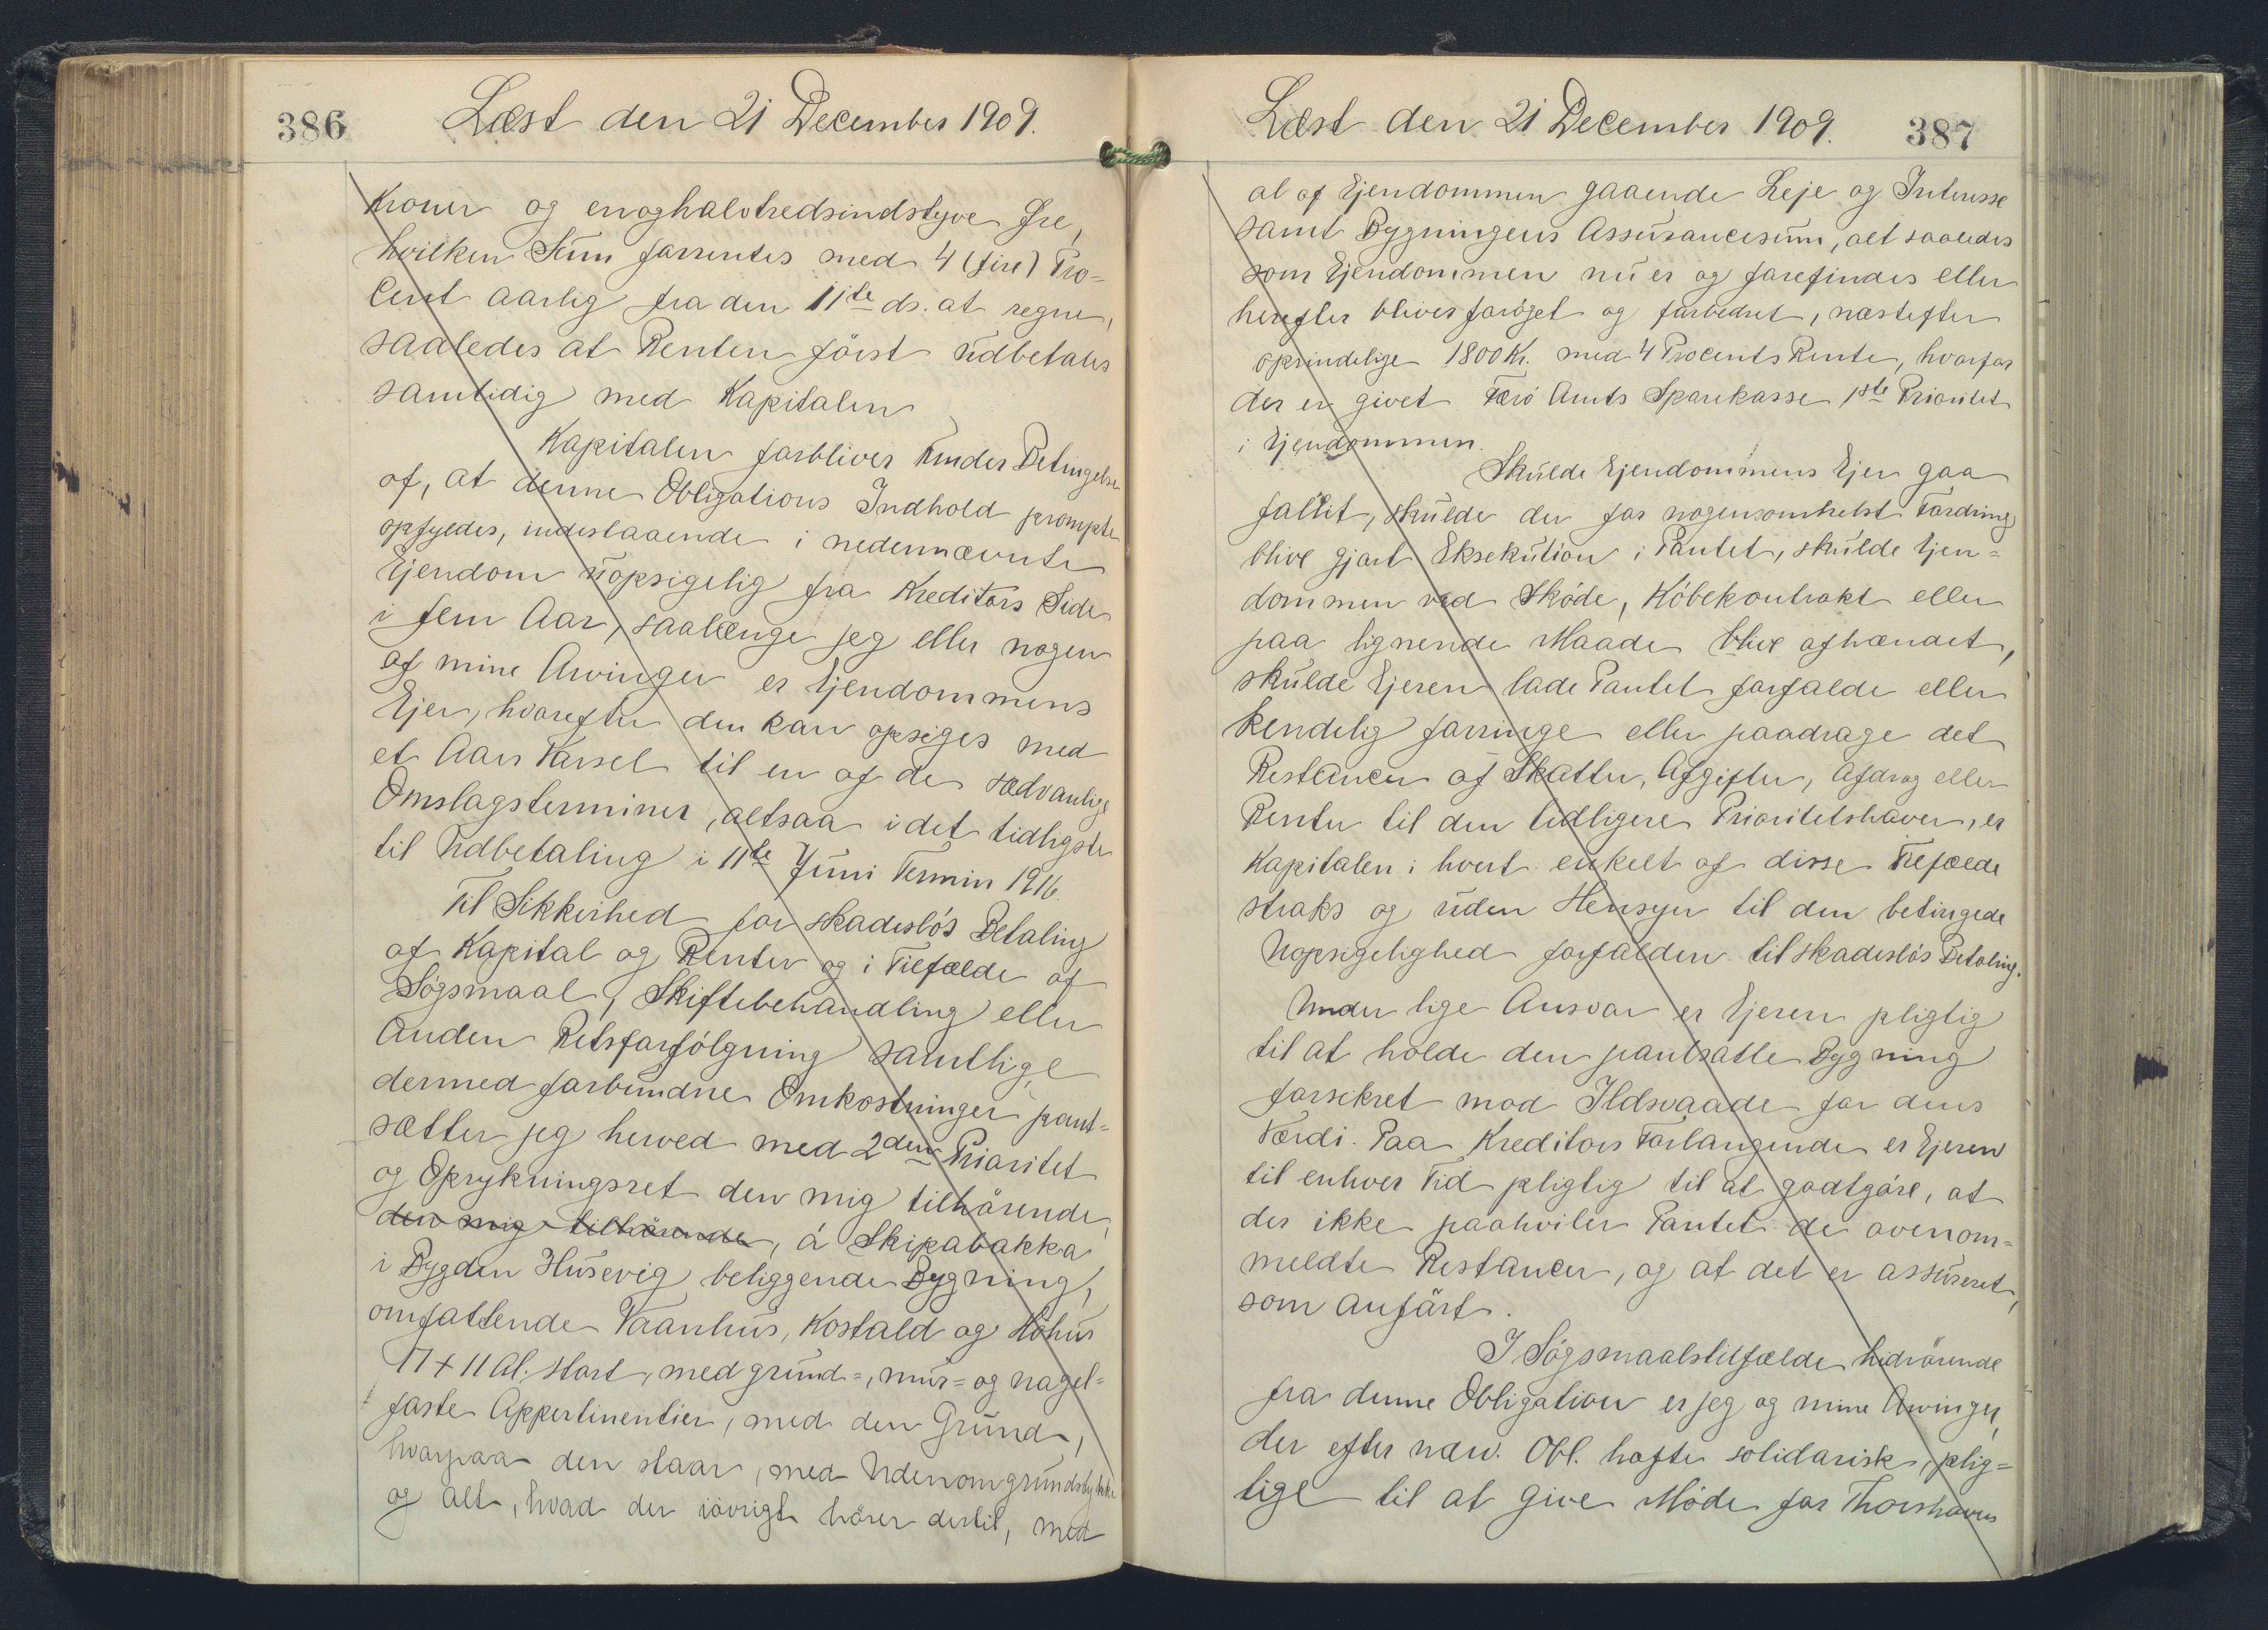 386
Læst den 21 December 1909.
Kroner og enoghalvtredsindstyve Øre,
hvilken Sum forrentes med 4 (fire) Pro=
cent aarlig fra den 11te ds. at regne,
saaledes at Renten först udbetales
samtidig med Kapitalen
Kapitalen forbliver under Betingelse
af, at denne Obligations Indhold prompte
opfyldes, indestaaende i nedennævnte
Ejendom uopsigelig fra Kreditors Side
i fem Aar, saalænge jeg eller nogen
af mine Arvinger er Ejendommens
Ejer, hvorefter den kan opsiges med
et Aars Varsel til en af de sædvanlige
Omslagsterminer, altsaa i det tidligste
til Udbetaling i 11te Juni Termin 1916.
Til Sikkerhed for skadeslös Betaling
af Kapital og Renter og i Tilfælde af
Sögsmaal, Skiftebehandling eller
anden Retsforfölgning samtlige
dermed forbundne Omkostninger pant=
sætter jeg herved med 2den Prioritet
og Oprykningsret den mig tilhörende,
den mig tilhörende, á Skipabakka
i Bygden Husevig beliggende Bygning,
omfattende Vaanhus, Kostald og Höhus
17 + 11 Al. stort, med grund=, mur= og nagel=
faste Appertinentier, med den Grund,
hvorpaa den staar, med Udenomgrundstykke
og alt, hvad der iövrigt hörer dertil, med
Læst den 21 December 1909.
387
al af Ejendommen gaaende Leje og Interesse
samt Bygningens Assurancesum, alt saaledes
som Ejendommen nu er og forefindes eller
herefter bliver foröget og forbedret, næstefter
oprindelige 1800 Kr. med 4 Procents Rente, hvorfor
der er givet Færö Amts Sparekasse 1ste Prioritet
i Ejendommen.
Skulde Ejendommens Ejer gaa
fallit, skulde der for nogensomhelst Fordring
blive gjort Eksekution i Pantet, skulde Ejen=
dommen ved Sköde, Köbekontrakt eller
paa lignende Maade blive afhændet,
skulde Ejeren lade Pantet forfalde eller
kendelig forringe eller paadrage det
Restancer af Skatter, Afgifter, Afdrag eller
Renter til den tidligere Prioritetshaver, er
Kapitalen i hvert enkelt af disse Tilfælde
straks og uden Hensyn til den betingede
Uopsigelighed forfalden til skadeslös Betaling.
Under lige Ansvar er Ejeren pligtig
til at holde den pantsatte Bygning
forsikret mod Ildsvaade for dens
Værdi. Paa Kreditors Forlangende er Ejeren
til enhver Tid pligtig til at godtgöre, at
der ikke paahviler Pantet de ovenom=
meldte Restancer, og at det er assureret,
som anfört.
I Sögsmaalstilfælde hidrörende
fra denne Obligation er jeg og mine Arvinger,
der efter nærv. Obl. hafte solidarisk, plig=
tige til at give Möde for Thorshavns